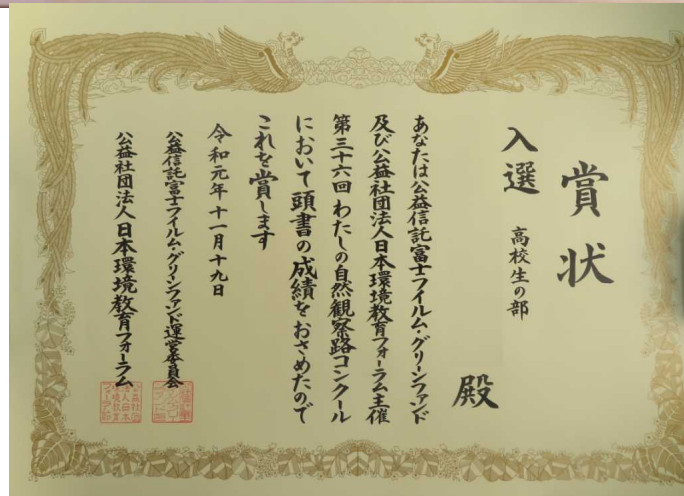 賞状
入選 高校生の部
殿
あなたは公益信託富士フイルム・グリーンファンド
及び公益社団法人日本環境教育フォーラム主催
第三十六回 わたしの自然観察路コンクール
において頭書の成績をおさめたので
これを賞します
令和元年十一月十九日
公益信託富士フイルム・グリーンファンド運営委員会
公益社団法人日本環境教育フォーラム